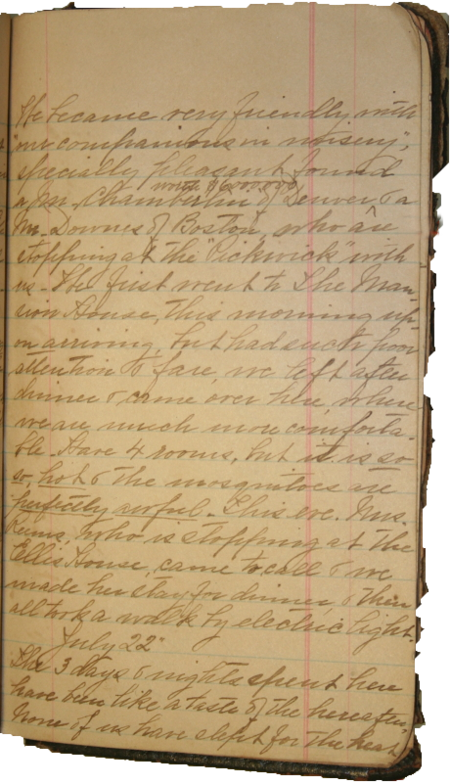 We became very friendly with
"our companions in misery",
specially pleasant found
worth $6,000,000
a Mr. Chamberlin of Denver, & a
Mr. Downes of Boston, who are
stopping at the "Pickwick" with
us. We first went to The Man-
sion House, this morning up-
on arriving, but had such poor
attention & fare, we left after
dinner & came over here, where
we are much more comforta-
ble. Have 4 rooms, but it is so
so, hot & the mosquitoes are
perfectly awful. This eve. Mrs.
who is stopping at the
Ellis House, came to call & we
made her stay for dinner & then
all took a walk by electric light.
July 22"
The 3 days & nights spent here
have been like a taste of the hereafter,
None of us have slept for the heat